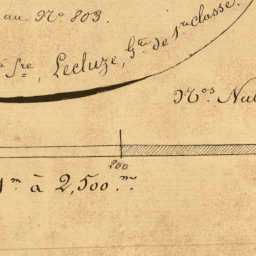 au N.º 803.
S.re, Lecluze, G.de de 1re classe.
N.os Nu
200
1m à 2,500.m